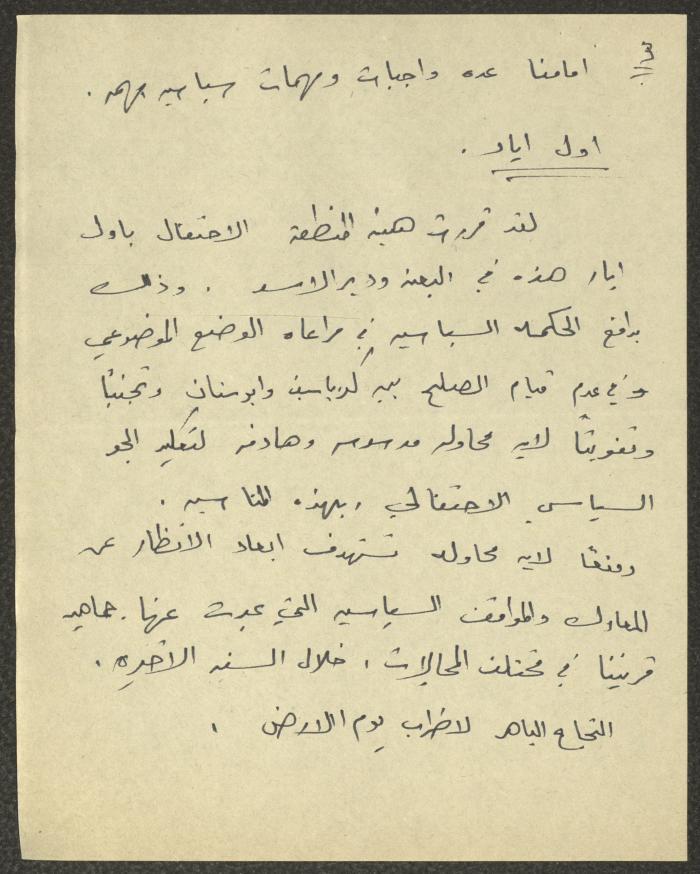 ٣
امامنا عده واجبات ومهمات سياسيه مهمه .
اول ايار .
لقد قررت هيئة المنطقة الاحتفال باول
ايار هذه في البعنه وديرالاسد . وذلك
بدافع الحكمه السياسيه في مراعاه الوضع الموضوعي
وفي عدم قيام الصلح بين كفرياسيف وابوسنان وتجنبًا
وتفويتًا لايه محاوله مدسوسه وهادفه لتعكير الجو
السياسي الاحتفالي بهذه المناسبه .
ومنعًا لايه محاوله تستهدف ابعاد الانظار عن
المعارك والمواقف السياسيه التي عبرت عنها جماهير
قريتنا في مختلف المجالات ، خلال السنه الاخيره .
النجاح الباهر لاضراب يوم الارض .